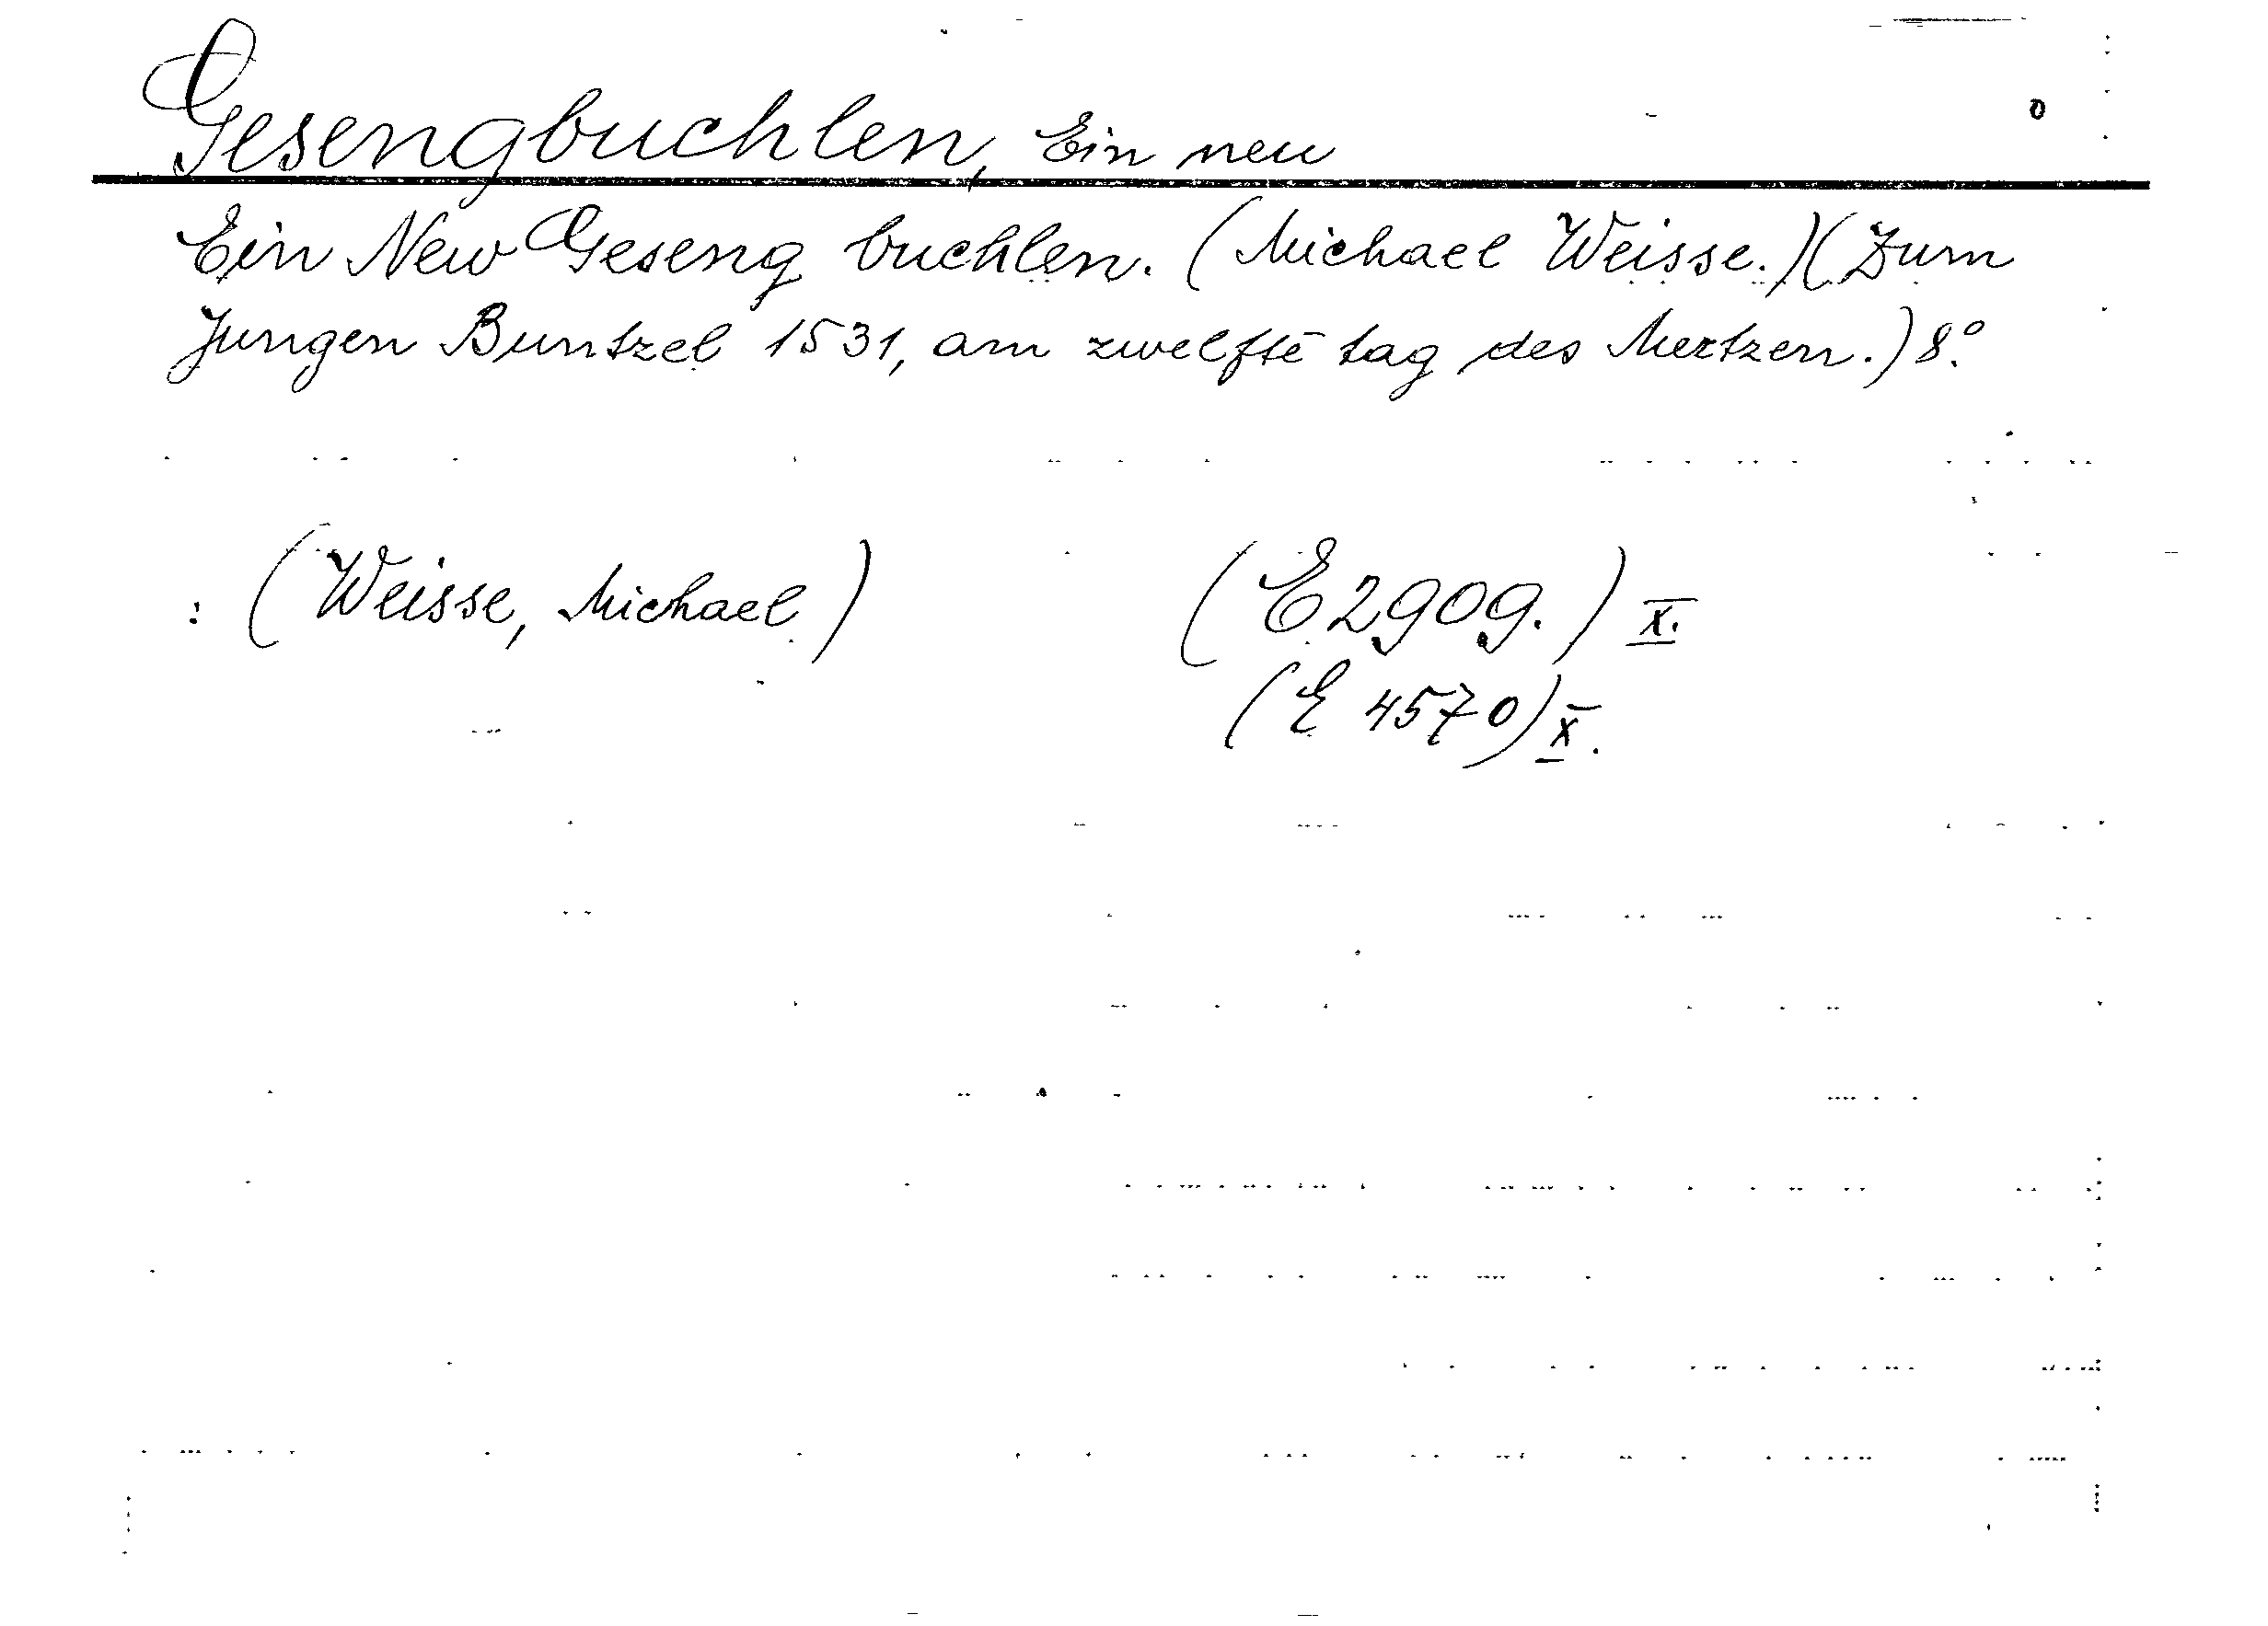 Gesengbuchlen, Ein neu
Ein New Geseng buchlen. (Michael Weisse.)(Zum
Jungen Buntzel 1531, am zwelftē tag des Mertzen.) 8.°
: (Weisse, Michael) (E 2909.) X.
(E 4570) X.